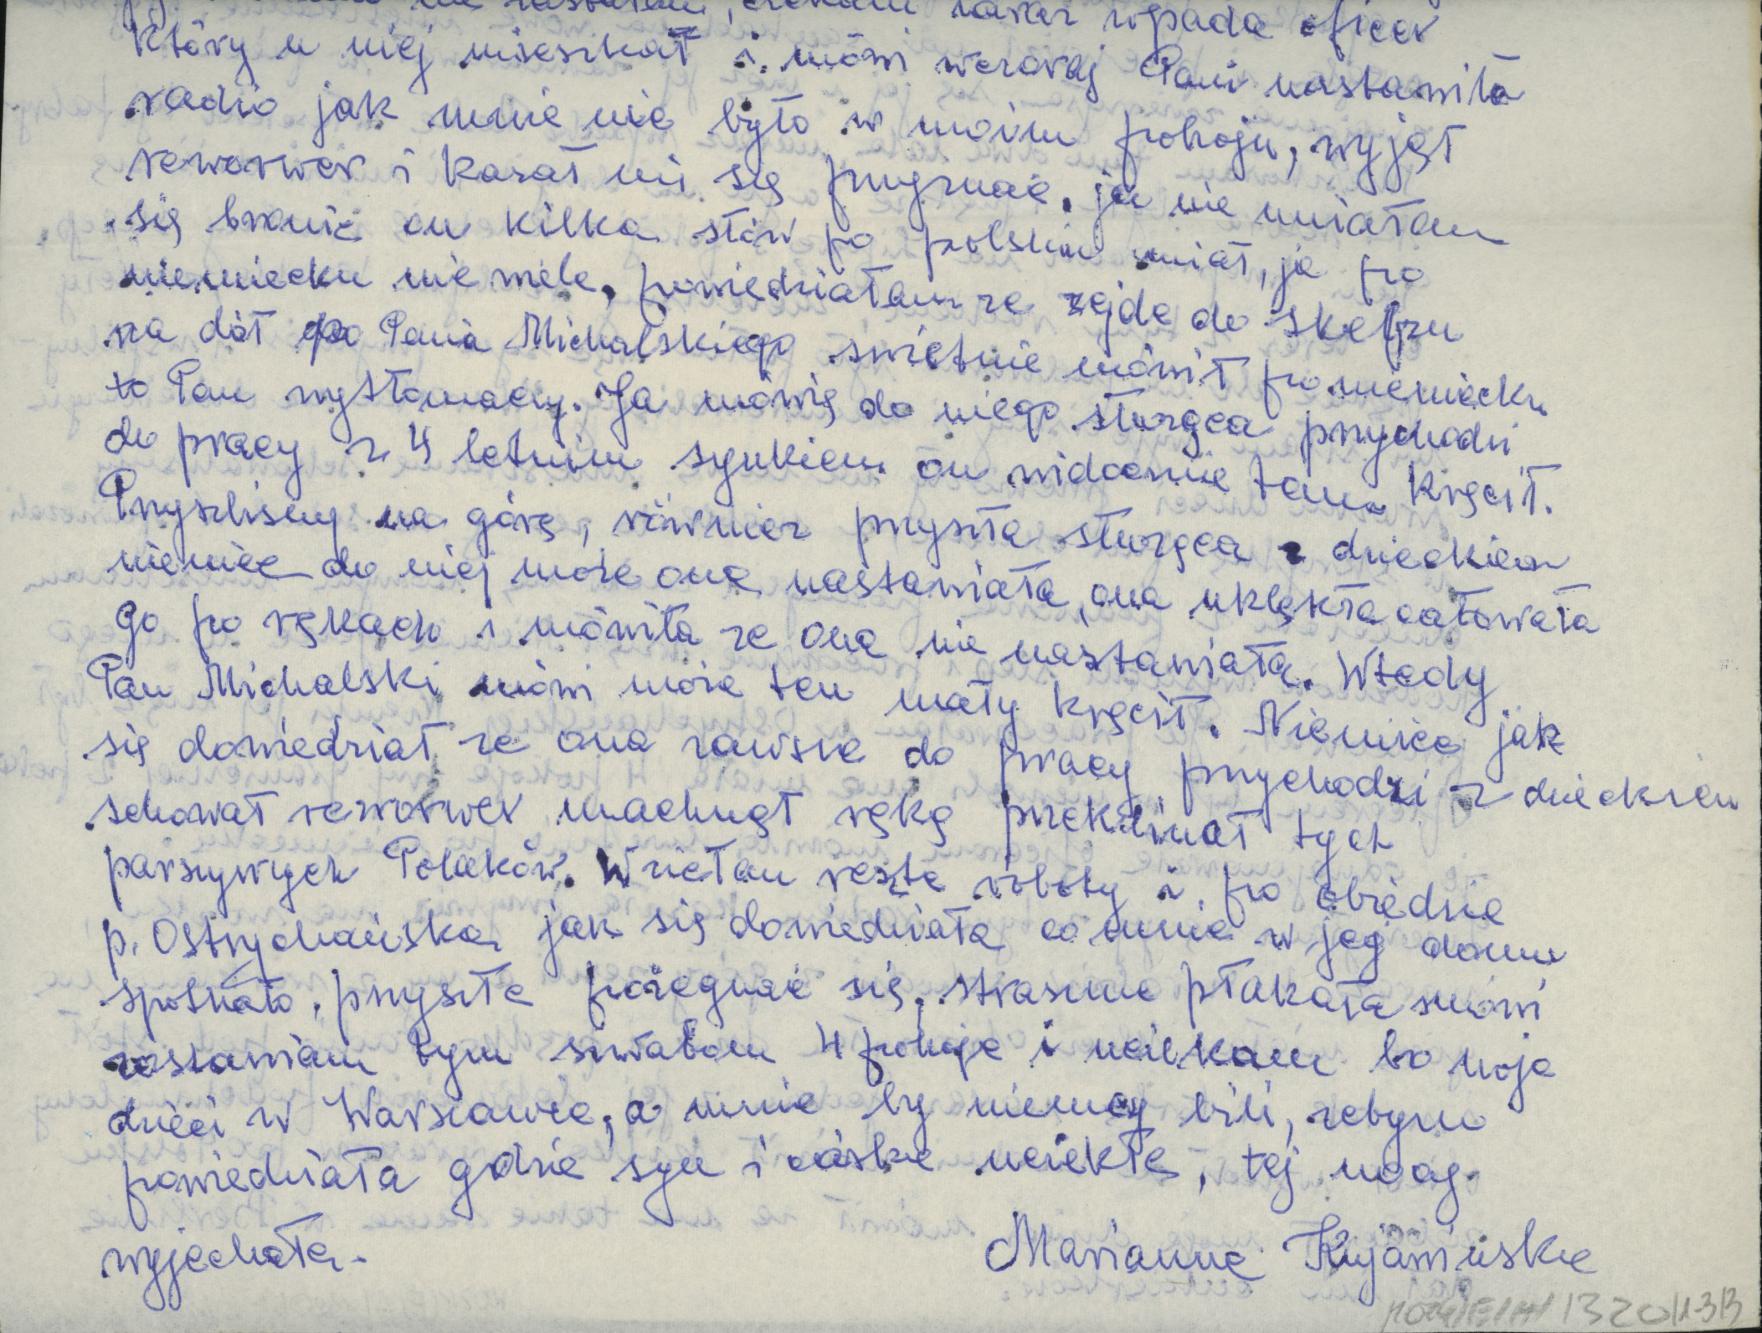 nie zastałam, czekam zaraz wpada oficer
który u niej mieszkał i mówi wczoraj Pani nastawiła
radio jak mnie nie było w moim pokoju, wyjął
reworwer i kazał mi się przyznać, ja nie umiałam
się bronić on kilka słów po polsku umiał, ja po
niemiecku nie wiele, powiedziałam ze zejde do sklepu
na dół po Pana Michalskiego swietnie mówił po niemiecku
to Pan wytłomaczy. Ja mówię do niego służąca przychodzi
do pracy z 4 letnim synkiem on widocznie tam kręcił.
Przyszliśmy na górę, również przyszła służąca z dzieckiem
niemiec do niej może ona nastawiała, ona uklękła całowała
go po rękach i mówiła ze ona nie nastawiała. Wtedy
Pan Michalski mówi może ten mały kręcił. Niemiec jak
się dowiedział ze ona zawsze do pracy przychodzi z dzieckiem
schował reworwer machnął ręką przeklinał tych
parszywych Polaków. Wziełam resztę roboty i po obiedzie
p. Ostrychańska jak się dowiedziała co mnie w jej domu
spotkało, przyszła pożegnać się, strasznie płakała mówi
zostawiam tym szwabom 4 pokoje i uciekam bo moje
dzieci w Warszawie, a mnie by niemcy bili, zebym
powiedziała gdzie syn i córka uciekła, tej nocy
wyjechała.
Marianna Kujawińska
1320